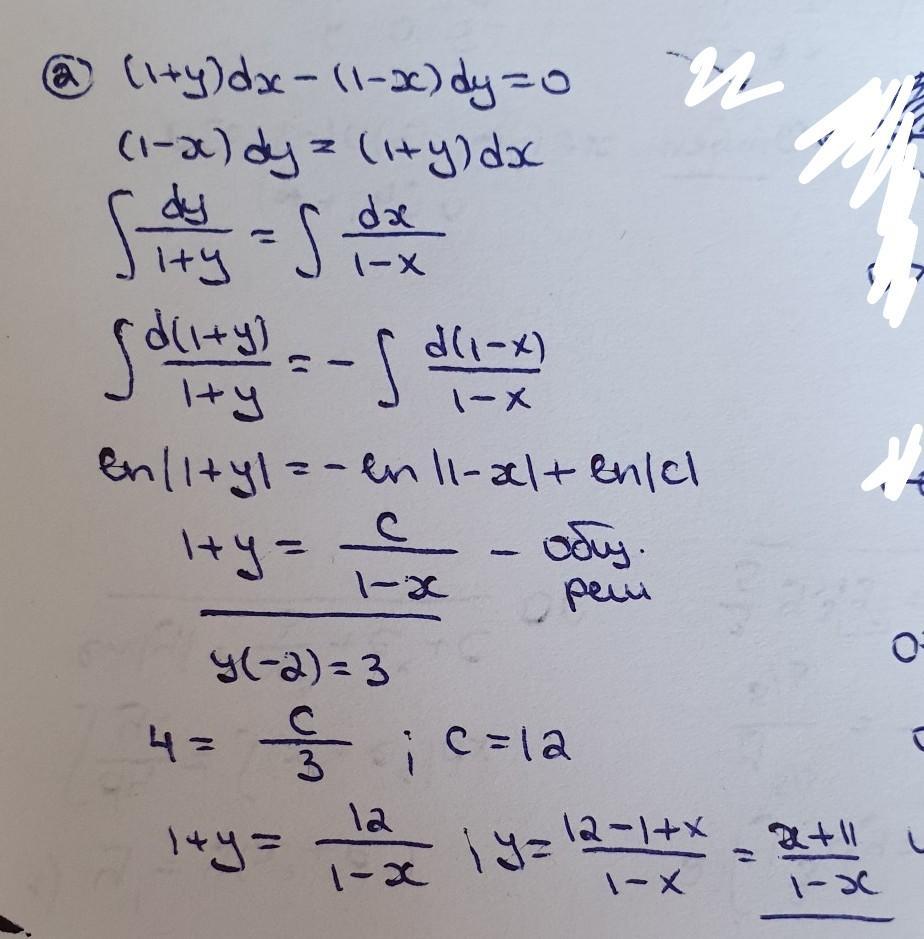 а) (1+y)dx - (1-x)dy = 0
(1-x)dy = (1+y)dx
∫ dy/(1+y) = ∫ dx/(1-x)
∫ d(1+y)/(1+y) = - ∫ d(1-x)/(1-x)
ln|1+y| = - ln|1-x| + ln|c|
1+y = c/(1-x) - общ.
реш
y(-2) = 3
4 = c/3 ; c = 12
1+y = 12/(1-x) ; y = (12-1+x)/(1-x) = (x+11)/(1-x)